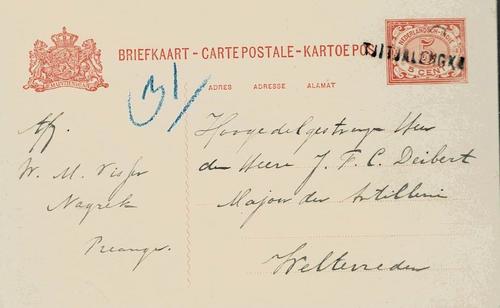 BRIEFKAART - CARTE POSTALE - KARTOE POS
ADRES ADRESSE ALAMAT
NEDERLANDSCH-INDIË
5
5 CENT
TJITJALENGKA
JE MAINTIENDRAI
31/
Afz.
W. M. Visser
Nagrek
Preanger
Hoogedelgestrenge Heer
den Heere J. F. C. Deibert
Majoor der Artillerie
Weltevreden